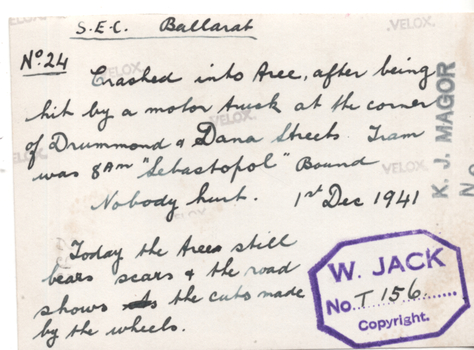 S.E.C. Ballarat
VELOX.
No. 24
Crashed into tree, after being
VELOX.
hit by a motor truck at the corner
VELOX.
of Drummond & Dana Streets. Tram
was 8 AM "Sebastopol" Bound
VELOX.
Nobody hurt. 1st Dec 1941
VELOX.
K. J. MAGOR
Today the tree still
bears scars & the road
shows the cuts made
by the wheels.
W. JACK
No. T 156.
Copyright.